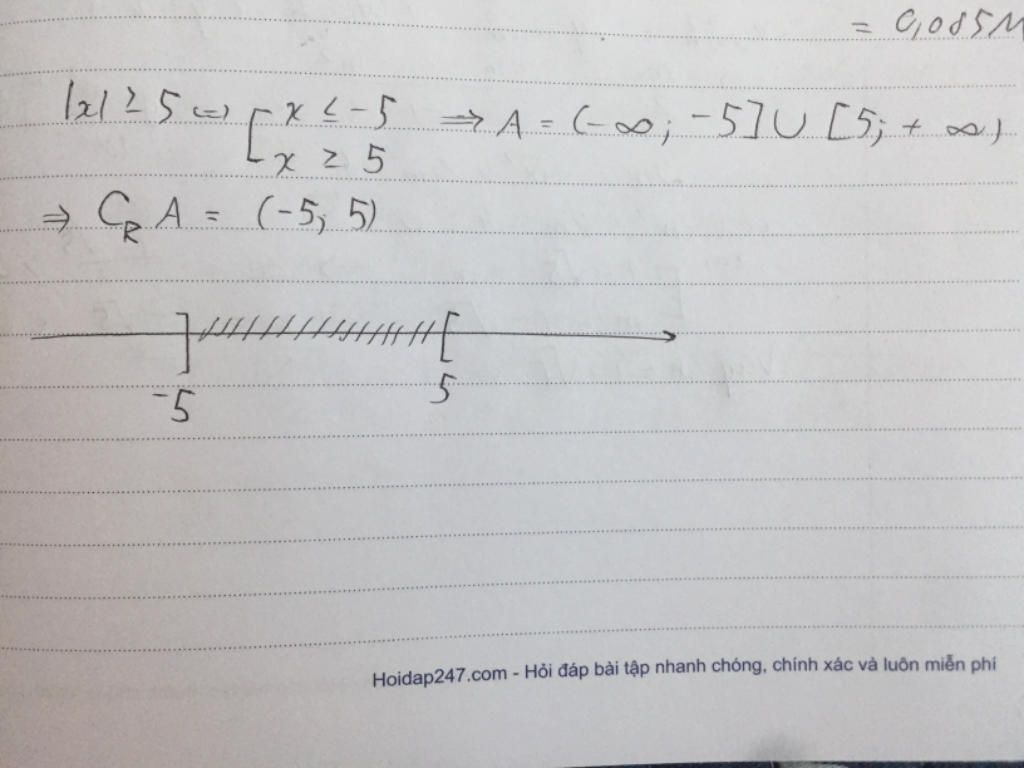 = 0,085M
|x| ≥ 5 ⇔ [ x ≤ -5 ⇒ A = (-∞; -5] ∪ [5; + ∞)
x ≥ 5
⇒ C_R A = (-5; 5)
-5 5
Hoidap247.com - Hỏi đáp bài tập nhanh chóng, chính xác và luôn miễn phí